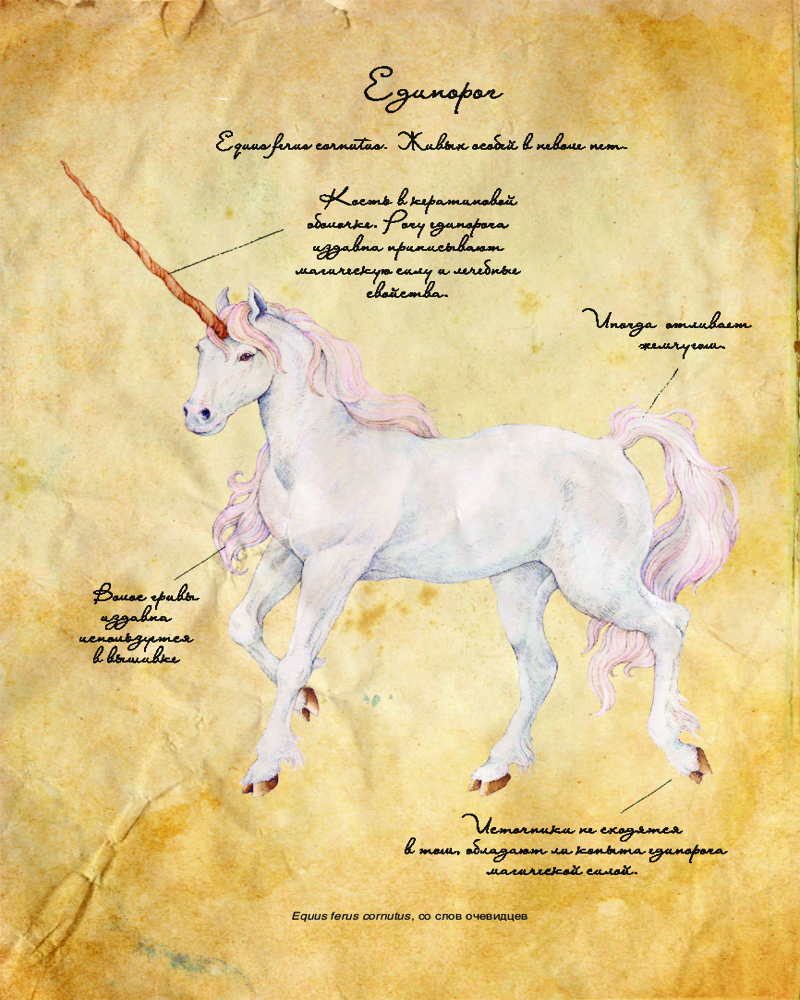 Единорог
Equus ferus cornutus. Живых особей в неволе нет.
Кость в кератиновой
оболочке. Рогу единорога
издавна приписывают
магическую силу и лечебные
свойства.
Иногда отливает
жемчугом.
Волос гривы
издавна
используется
в вышивке
Источники не сходятся
в том, обладают ли копыта единорога
магической силой.
Equus ferus cornutus, со слов очевидцев